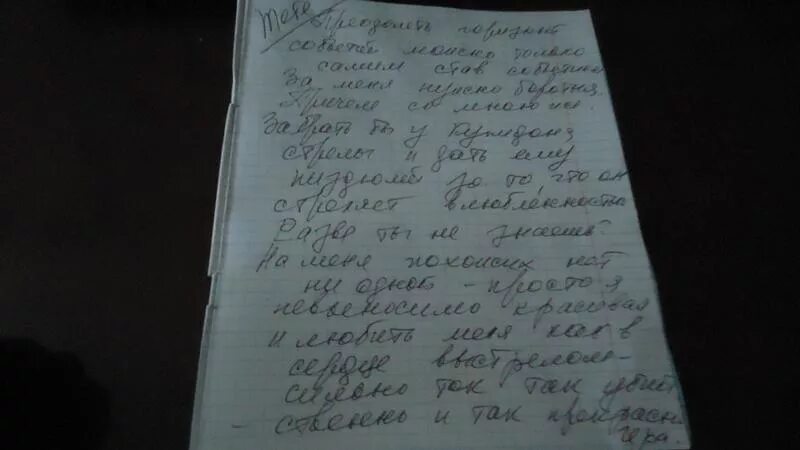 Тете
Преодолеть горизонт
событий можно только
самим став событием
За меня нужно бороться.
Причем со мною же.
Забрать бы у Купидона
стрелы и дать ему
пиздюлей за то, что он
стреляет влюбленностью
Разве ты не знаешь?
На меня похожих нет
ни одной - просто я
невыносимо красивая
и любить меня как в
сердце выстрелом -
сильно так убий
ственно и так прекрасн